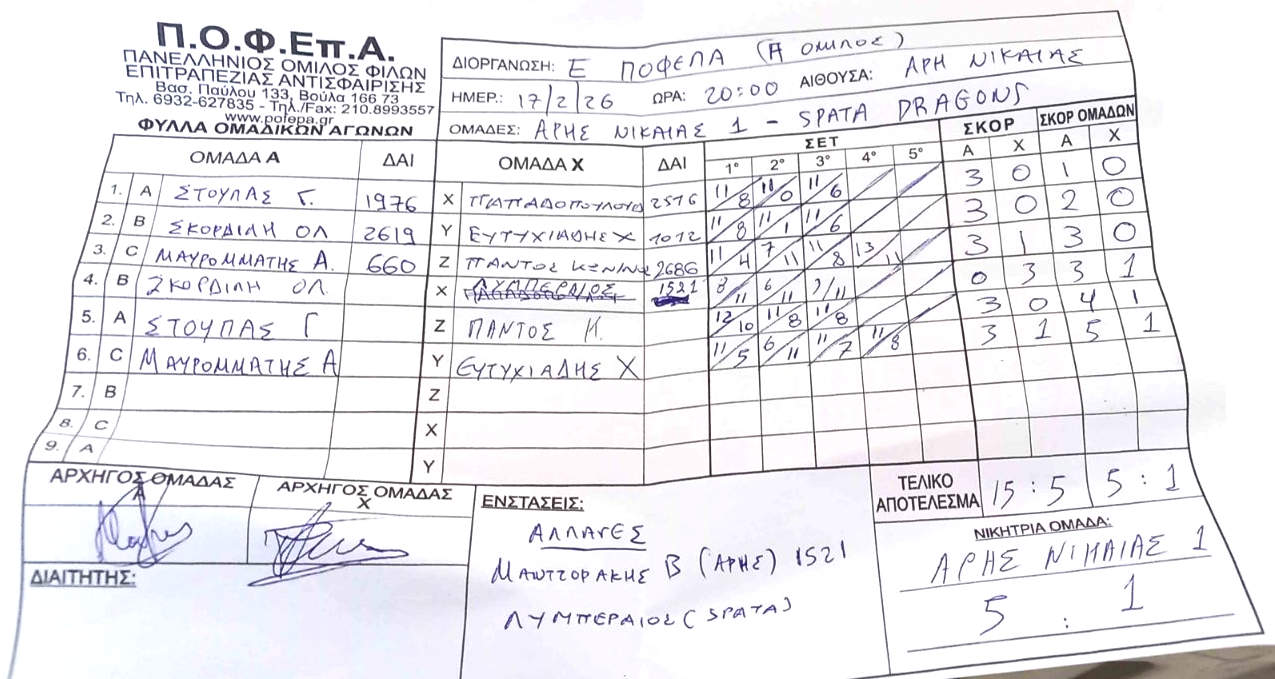 Π.Ο.Φ.Επ.Α.
ΠΑΝΕΛΛΗΝΙΟΣ ΟΜΙΛΟΣ ΦΙΛΩΝ
ΕΠΙΤΡΑΠΕΖΙΑΣ ΑΝΤΙΣΦΑΙΡΙΣΗΣ
Βασ. Παύλου 133, Βούλα 166 73
Τηλ. 6932-627835 - Τηλ./Fax: 210.8993557
www.pofepa.gr
ΦΥΛΛΑ ΟΜΑΔΙΚΩΝ ΑΓΩΝΩΝ
ΔΙΟΡΓΑΝΩΣΗ: Ε ΠΟΦΕΠΑ (Α ΟΜΙΛΟΣ)
ΗΜΕΡ.: 17/2/26 ΩΡΑ: 20:00 ΑΙΘΟΥΣΑ: ΑΡΗ ΝΙΚΑΙΑΣ
ΟΜΑΔΕΣ: ΑΡΗΣ ΝΙΚΑΙΑΣ 1 - SPATA DRAGONS
ΟΜΑΔΑ Α ΔΑΙ ΟΜΑΔΑ Χ ΔΑΙ ΣΕΤ ΣΚΟΡ ΣΚΟΡ ΟΜΑΔΩΝ
1º 2º 3º 4º 5º Α Χ Α Χ
1. Α ΣΤΟΥΠΑΣ Γ. 1976 Χ ΠΑΠΑΔΟΠΟΥΛΟΣ 2516 11/8 11/0 11/6 3 0 1 0
2. Β ΣΚΟΡΔΙΛΗ ΟΛ 2619 Υ ΕΥΤΥΧΙΑΔΗΣ Χ 1012 11/8 11/1 11/6 3 0 2 0
3. C ΜΑΥΡΟΜΜΑΤΗΣ Α. 660 Ζ ΠΑΝΤΟΣ 2686 11/4 7/11 11/8 13/11 3 1 3 0
4. Β ΣΚΟΡΔΙΛΗ ΟΛ Χ ΛΥΜΠΕΡΑΙΟΣ 1521 8/11 6/11 9/11 0 3 3 1
5. Α ΣΤΟΥΠΑΣ Γ Ζ ΠΑΝΤΟΣ Κ. 12/10 11/8 11/8 3 0 4 1
6. C ΜΑΥΡΟΜΜΑΤΗΣ Α Υ ΕΥΤΥΧΙΑΔΗΣ Χ 11/5 6/11 11/7 11/8 3 1 5 1
7. Β Ζ
8. C Χ
9. Α Υ
ΑΡΧΗΓΟΣ ΟΜΑΔΑΣ Α
ΑΡΧΗΓΟΣ ΟΜΑΔΑΣ Χ
ΔΙΑΙΤΗΤΗΣ:
ΕΝΣΤΑΣΕΙΣ:
ΑΛΛΑΓΕΣ
ΜΑΝΤΖΟΡΑΚΗΣ Β (ΑΡΗΣ) 1521
ΛΥΜΠΕΡΑΙΟΣ (SPATA)
ΤΕΛΙΚΟ ΑΠΟΤΕΛΕΣΜΑ 15:5 5:1
ΝΙΚΗΤΡΙΑ ΟΜΑΔΑ:
ΑΡΗΣ ΝΙΚΑΙΑΣ 1
5 : 1